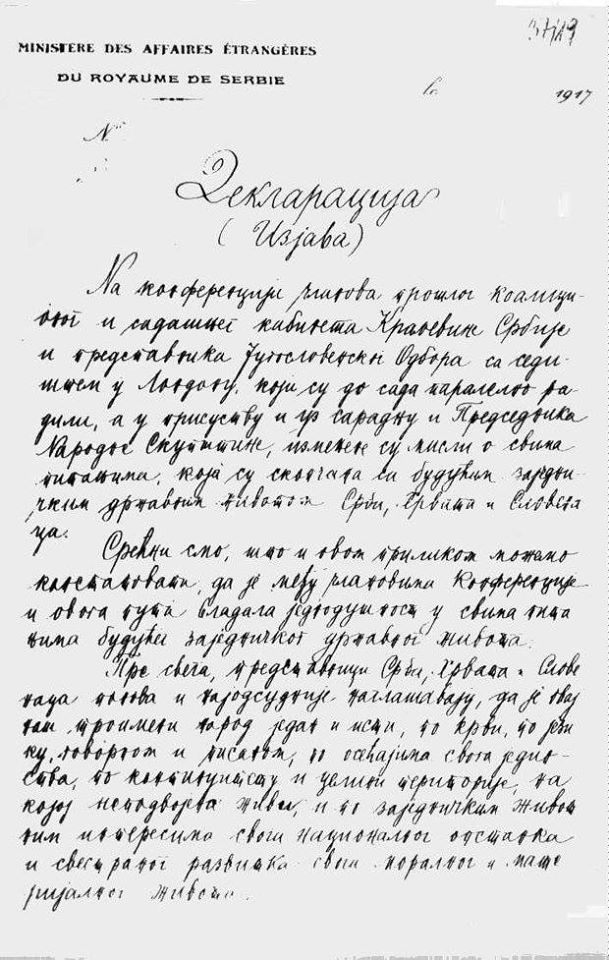 MINISTERE DES AFFAIRES ÉTRANGÈRES
DU ROYAUME DE SERBIE
1917
№
Декларација
(Изјава)
На конференцији чланова прошлог коалици-
оног и садашњег кабинета Краљевине Србије
и представника Југословенског Одбора са седи-
штем у Лондону, који су до сада паралелно ра-
дили, а у присуству и уз сарадњу и Председника
Народне Скупштине, измењене су мисли о свима
питањима, која су скопчана са будућим заједни-
чким државним животом Срба, Хрвата и Словена
ца.
Срећни смо, што и овом приликом можемо
констатовати, да је међу члановима Конференције
и овога пута владала једнодушност у свима пита
њима будућег заједничког државног живота.
Пре свега, представници Срба, Хрвата и Слове
наца понова и најодсудније наглашавају, да је овај
наш троимени народ један и исти, по крви, по јези
ку, говорном и писаном, по осећајима свога једин-
ства, по континуитету и целини територије, на
којој неподвојено живи, и по заједничким живот
ним интересима свог националног опстанка
и свестраног развитка свог моралног и мате
ријалног живота.